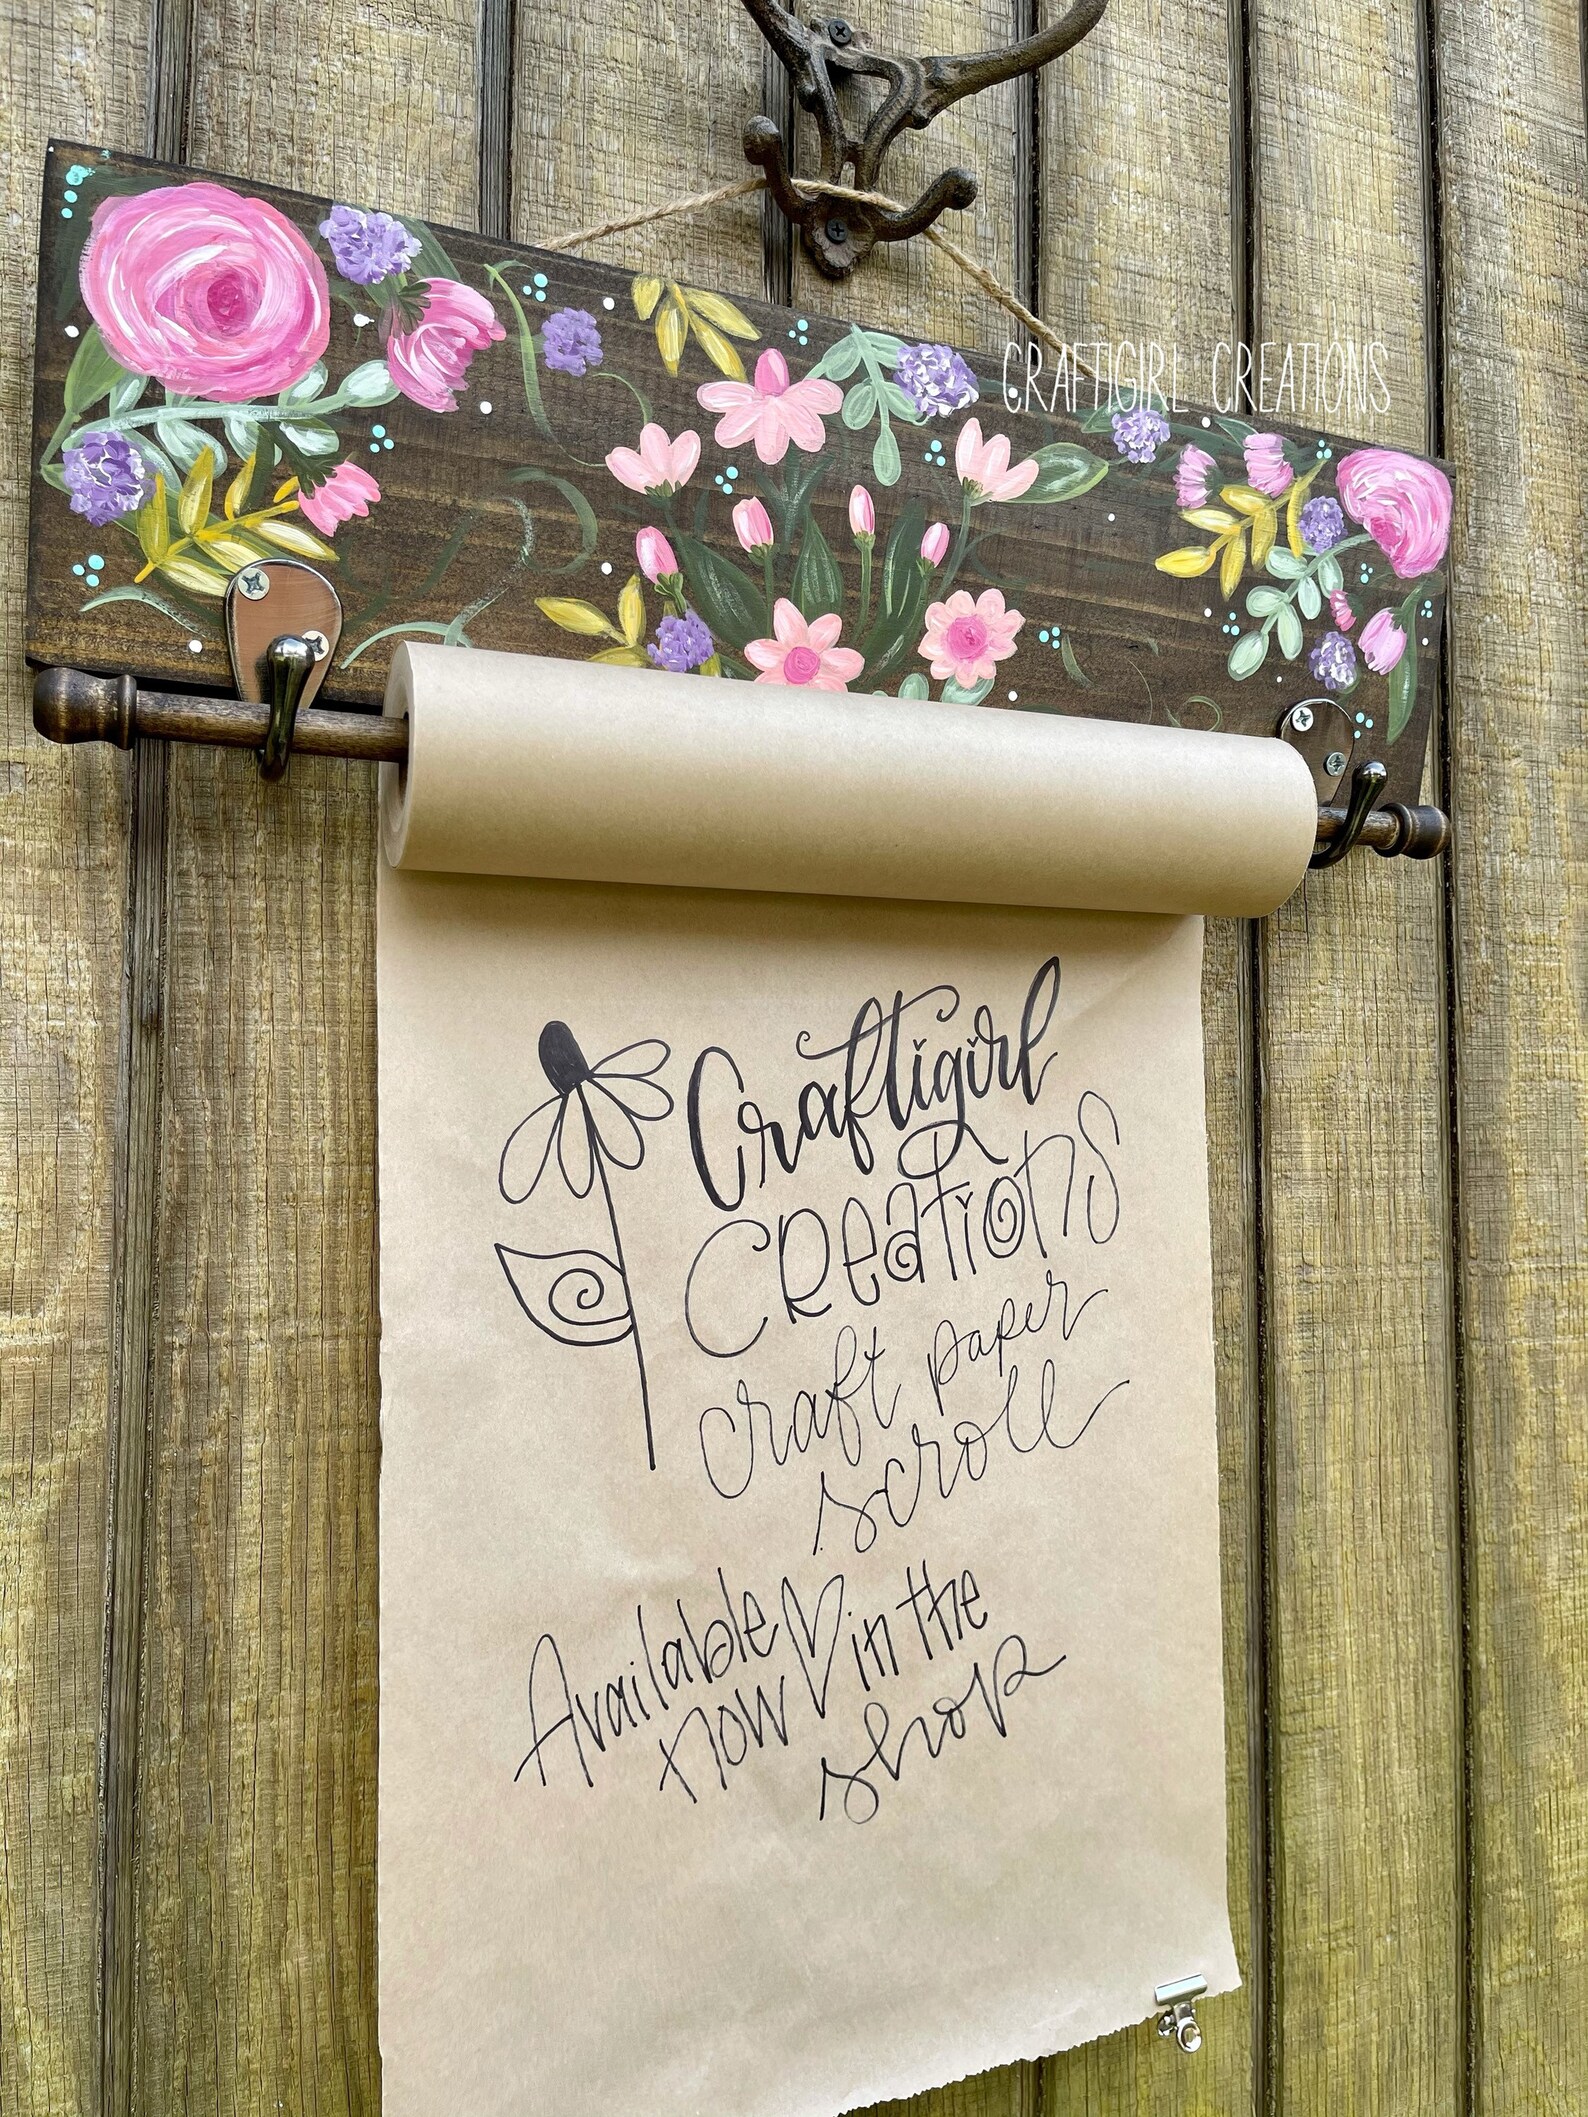 CRAFTIGIRL CREATIONS
Craftigirl
CReations
craft paper
scroll
Available in the
now shop